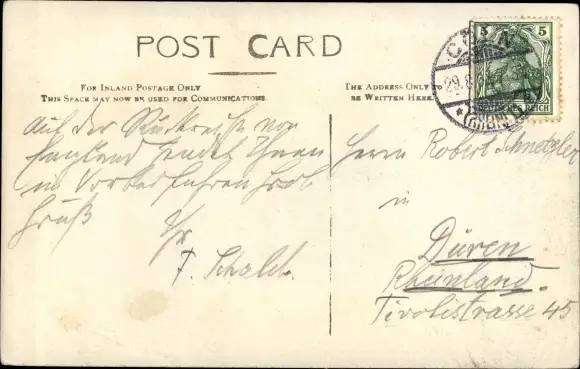 POST CARD
FOR INLAND POSTAGE ONLY
THIS SPACE MAY NOW BE USED FOR COMMUNICATIONS.
THE ADDRESS ONLY TO
BE WRITTEN HERE.
5 5
REICH
29.8
(RHEIN)
Auf der Rückreise von
England sendet Ihnen
im Vorbeifahren
Gruß
F.
Herrn Robert Schnetzler
in
Düren
Rheinland.
Tivolistrasse 45